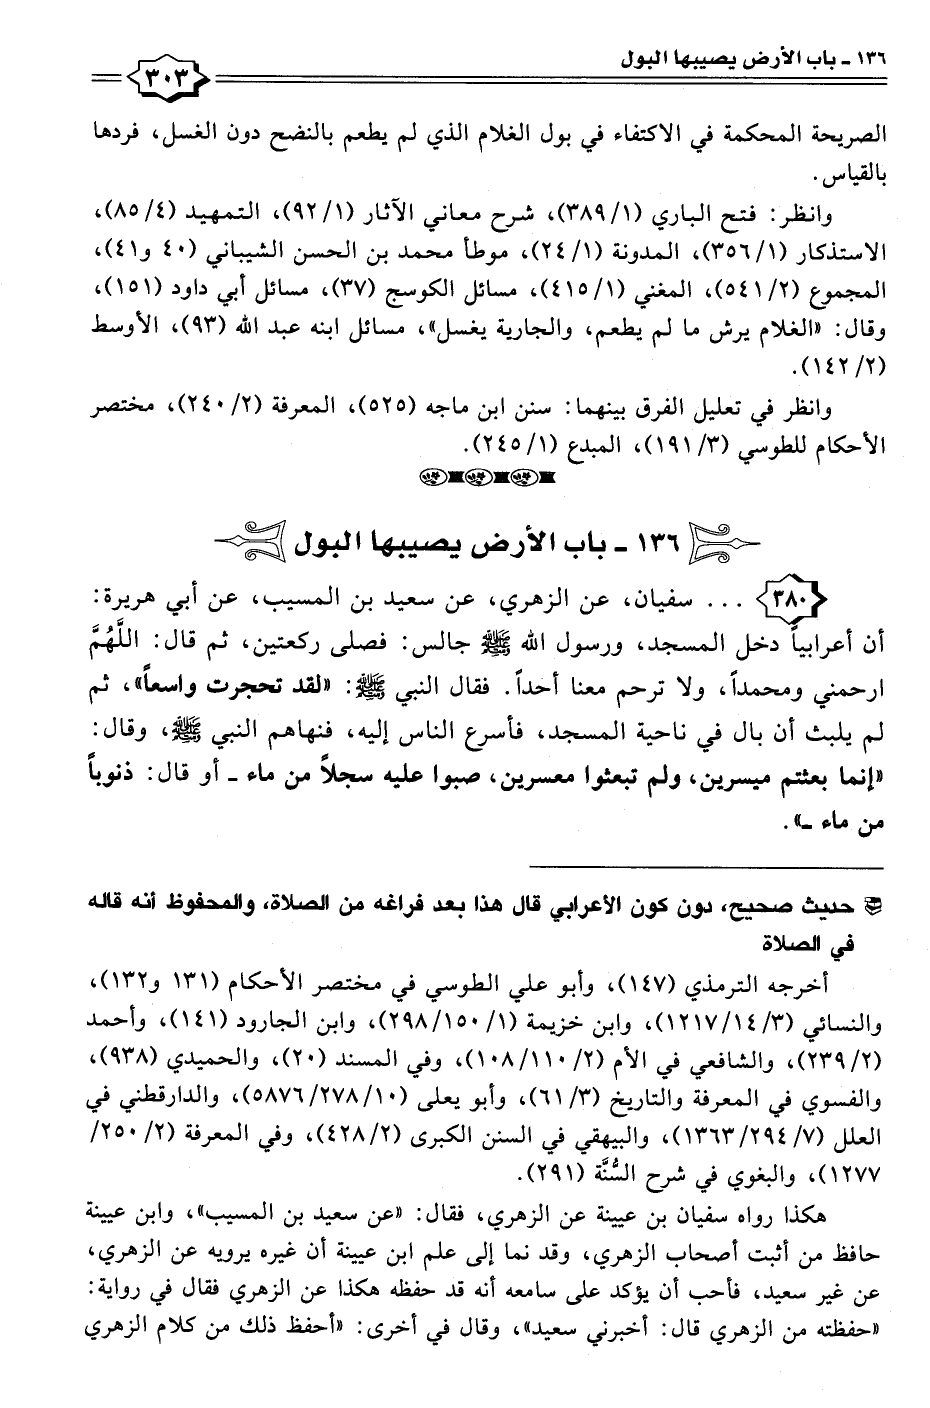 ١٣٦ ـ باب الأرض يصيبها البول
٣٠٣
الصريحة المحكمة في الاكتفاء في بول الغلام الذي لم يطعم بالنضح دون الغسل، فردها
بالقياس.
وانظر: فتح الباري (١/ ٣٨٩)، شرح معاني الآثار (١/ ٩٢)، التمهيد (٤/ ٨٥)،
الاستذكار (١/ ٣٥٦)، المدونة (١/ ٢٤)، موطأ محمد بن الحسن الشيباني (٤٠ و٤١)،
المجموع (٢/ ٥٤١)، المغني (١/ ٤١٥)، مسائل الكوسج (٣٧)، مسائل أبي داود (١٥١)،
وقال: «الغلام يرش ما لم يطعم، والجارية يغسل»، مسائل ابنه عبد الله (٩٣)، الأوسط
(٢/ ١٤٢).
وانظر في تعليل الفرق بينهما: سنن ابن ماجه (٥٢٥)، المعرفة (٢/ ٢٤٠)، مختصر
الأحكام للطوسي (٣/ ١٩١)، المبدع (١/ ٢٤٥).
١٣٦ ـ باب الأرض يصيبها البول
٣٨٠ ... سفيان، عن الزهري، عن سعيد بن المسيب، عن أبي هريرة:
أن أعرابياً دخل المسجد، ورسول الله ﷺ جالس: فصلى ركعتين، ثم قال: اللَّهُمَّ
ارحمني ومحمداً، ولا ترحم معنا أحداً. فقال النبي ﷺ: «لقد تحجرت واسعاً»، ثم
لم يلبث أن بال في ناحية المسجد، فأسرع الناس إليه، فنهاهم النبي ﷺ، وقال:
«إنما بعثتم ميسرين، ولم تبعثوا معسرين، صبوا عليه سجلاً من ماء ـ أو قال: ذنوباً
من ماء ـ».
حديث صحيح، دون كون الأعرابي قال هذا بعد فراغه من الصلاة، والمحفوظ أنه قاله
في الصلاة
أخرجه الترمذي (١٤٧)، وأبو علي الطوسي في مختصر الأحكام (١٣١ و١٣٢)،
والنسائي (٣/ ١٤/ ١٢١٧)، وابن خزيمة (١/ ١٥٠/ ٢٩٨)، وابن الجارود (١٤١)، وأحمد
(٢/ ٢٣٩)، والشافعي في الأم (٢/ ١١٠/ ١٠٨)، وفي المسند (٢٠)، والحميدي (٩٣٨)،
والفسوي في المعرفة والتاريخ (٣/ ٦١)، وأبو يعلى (١٠/ ٢٧٨/ ٥٨٧٦)، والدارقطني في
العلل (٧/ ٢٩٤/ ١٣٦٣)، والبيهقي في السنن الكبرى (٢/ ٤٢٨)، وفي المعرفة (٢/ ٢٥٠/
١٢٧٧)، والبغوي في شرح السُّنَّة (٢٩١).
هكذا رواه سفيان بن عيينة عن الزهري، فقال: «عن سعيد بن المسيب»، وابن عيينة
حافظ من أثبت أصحاب الزهري، وقد نما إلى علم ابن عيينة أن غيره يرويه عن الزهري،
عن غير سعيد، فأحب أن يؤكد على سامعه أنه قد حفظه هكذا عن الزهري فقال في رواية:
«حفظته من الزهري قال: أخبرني سعيد»، وقال في أخرى: «أحفظ ذلك من كلام الزهري